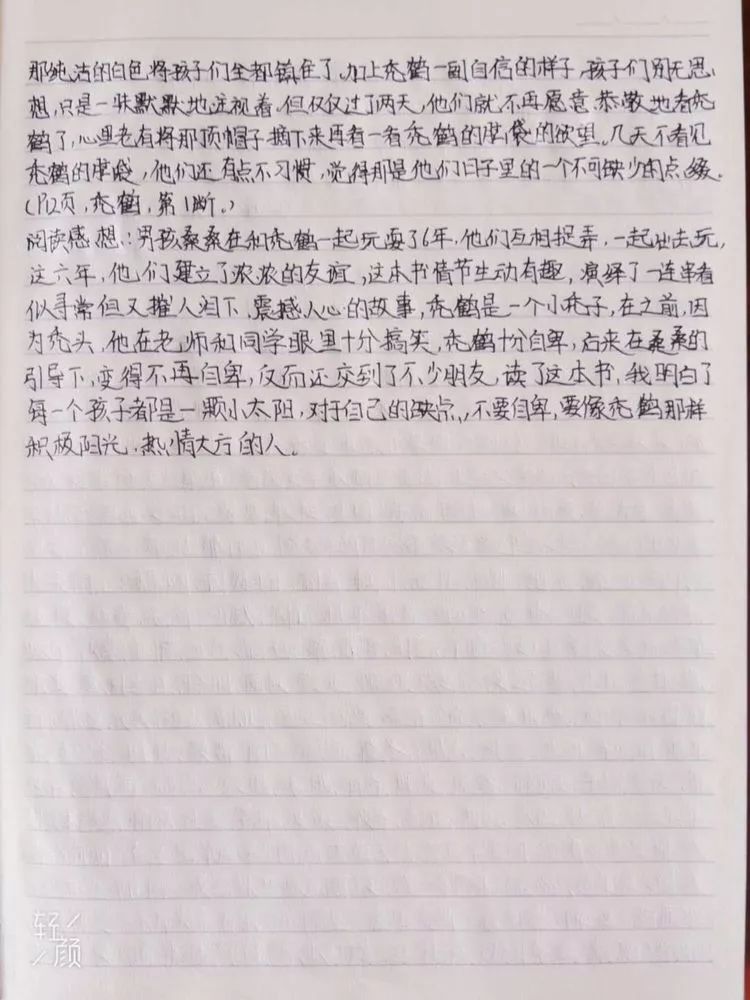 那纯洁的白色将孩子们全都镇住了,加上秃鹤一副自信的样子,孩子们别无思
想,只是一味默默地注视着。但仅仅过了两天,他们就不再愿意恭敬地看秃
鹤了,心里老有将那顶帽子摘下来再看一看秃鹤的脑袋的欲望。几天不看见
秃鹤的脑袋,他们还有点不习惯,觉得那是他们日子里的一个不可缺少的点缀.
(P12页,秃鹤,第1断。)
阅读感想:男孩桑桑在和秃鹤一起玩耍了6年,他们互相捉弄,一起出去玩,
这六年,他们建立了浓浓的友谊,这本书情节生动有趣,演绎了一连串看
似寻常但又摧人泪下、震撼人心的故事,秃鹤是一个小秃子,在之前,因
为秃头,他在老师和同学眼里十分搞笑,秃鹤十分自卑,后来在桑桑的
引导下,变得不再自卑,反而还交到了不少朋友,读了这本书,我明白了
每一个孩子都是一颗小太阳,对于自己的缺点,不要自卑,要像秃鹤那样
积极阳光,热情大方的人。
轻
颜